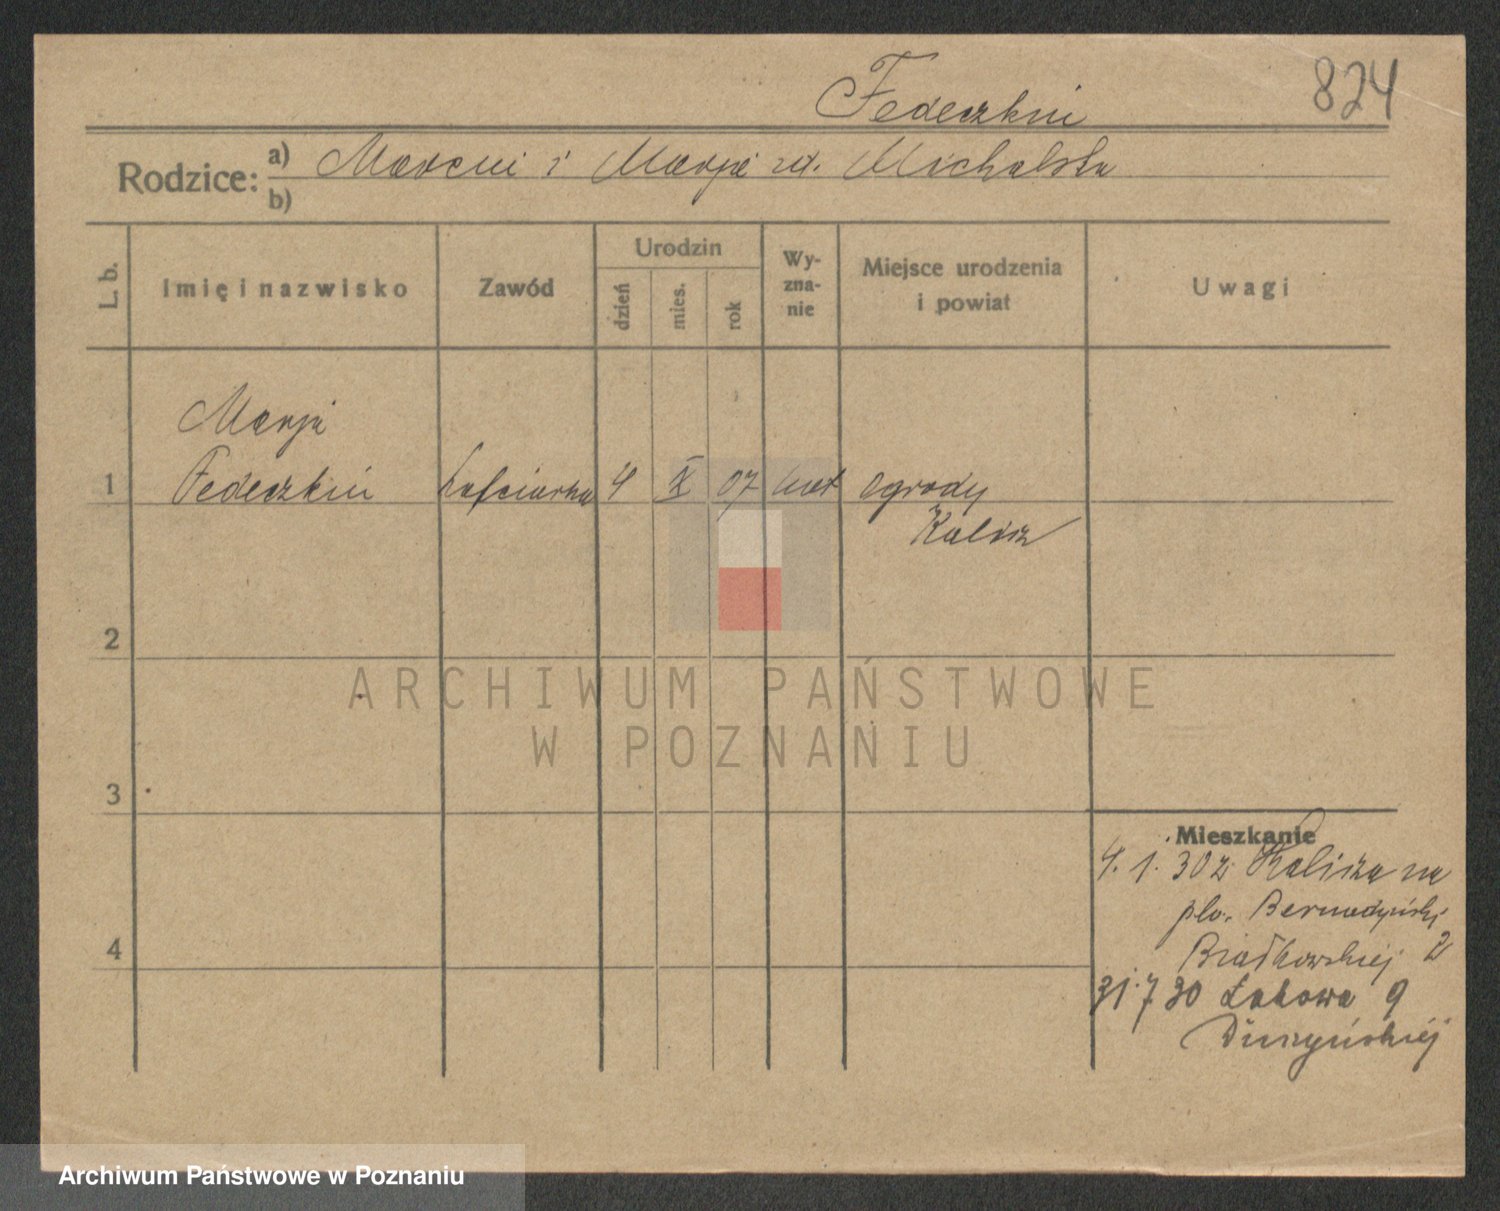 824
Fedeczkin
Rodzice: a) Marcin i Marja zd. Michalska
b)
L. b.
Imię i nazwisko
Zawód
Urodzin
dzień
mies.
rok
Wy-
zna-
nie
Miejsce urodzenia
i powiat
Uwagi
Marja
1 Fedeczkin hafciarka 4 X 07 kat Ogrody
Kalisz
2
3
4
ARCHIWUM PAŃSTWOWE
W POZNANIU
Mieszkanie
4. 1. 30 z Kalisza na
plv. Bernadyński
Białkowskiej 2
31.7 30 Łąkowa 9
Duszyńskiej
Archiwum Państwowe w Poznaniu